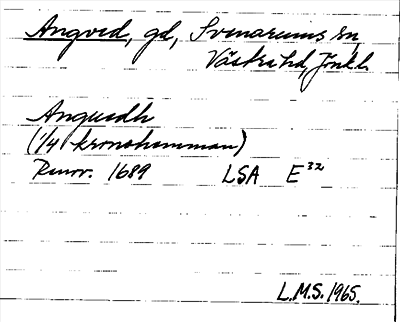 Angved, gd, Svenarums sn,
Västra hd, Jönk l.
Angusdh
(1/4 kronohemman)
Renov. 1689 LSA E³²
L.M.S. 1965.